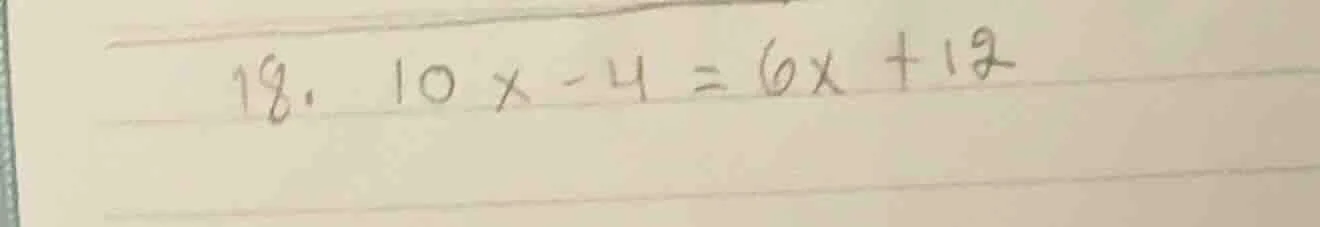 18. 10x - 4 = 6x + 12